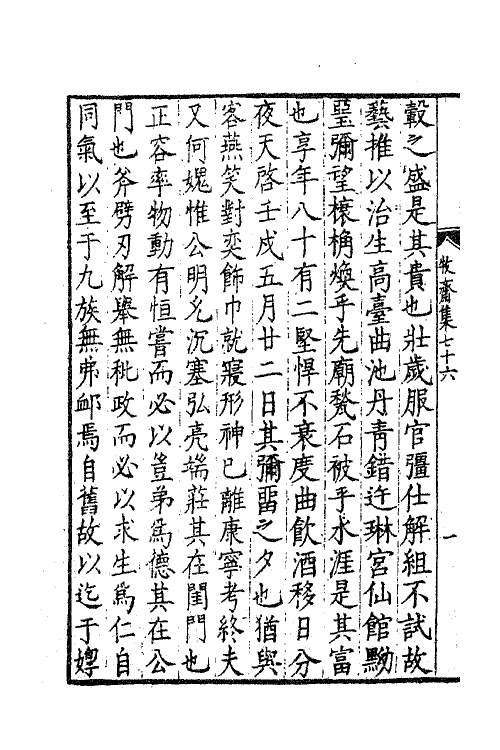 轂之盛是其貴也壯歲服官彊仕解組不試故
藝推以治生高臺曲池丹靑錯迕琳宮仙館黝
堊彌望榱桷煥乎先廟甃石被乎水涯是其富
也享年八十有二堅悍不衰度曲飮酒移日分
夜天啓壬戌五月廿二日其彌畱之夕也猶與
客燕笑對奕飾巾就寢形神已離康寧考終夫
又何媿惟公明允沉塞弘亮端莊其在閨門也
正容率物動有恒嘗而必以豈弟爲德其在公
門也斧劈刃解擧無秕政而必以求生爲仁自
同氣以至于九族無弗卹焉自舊故以迄于婢
牧齋集七十六
一